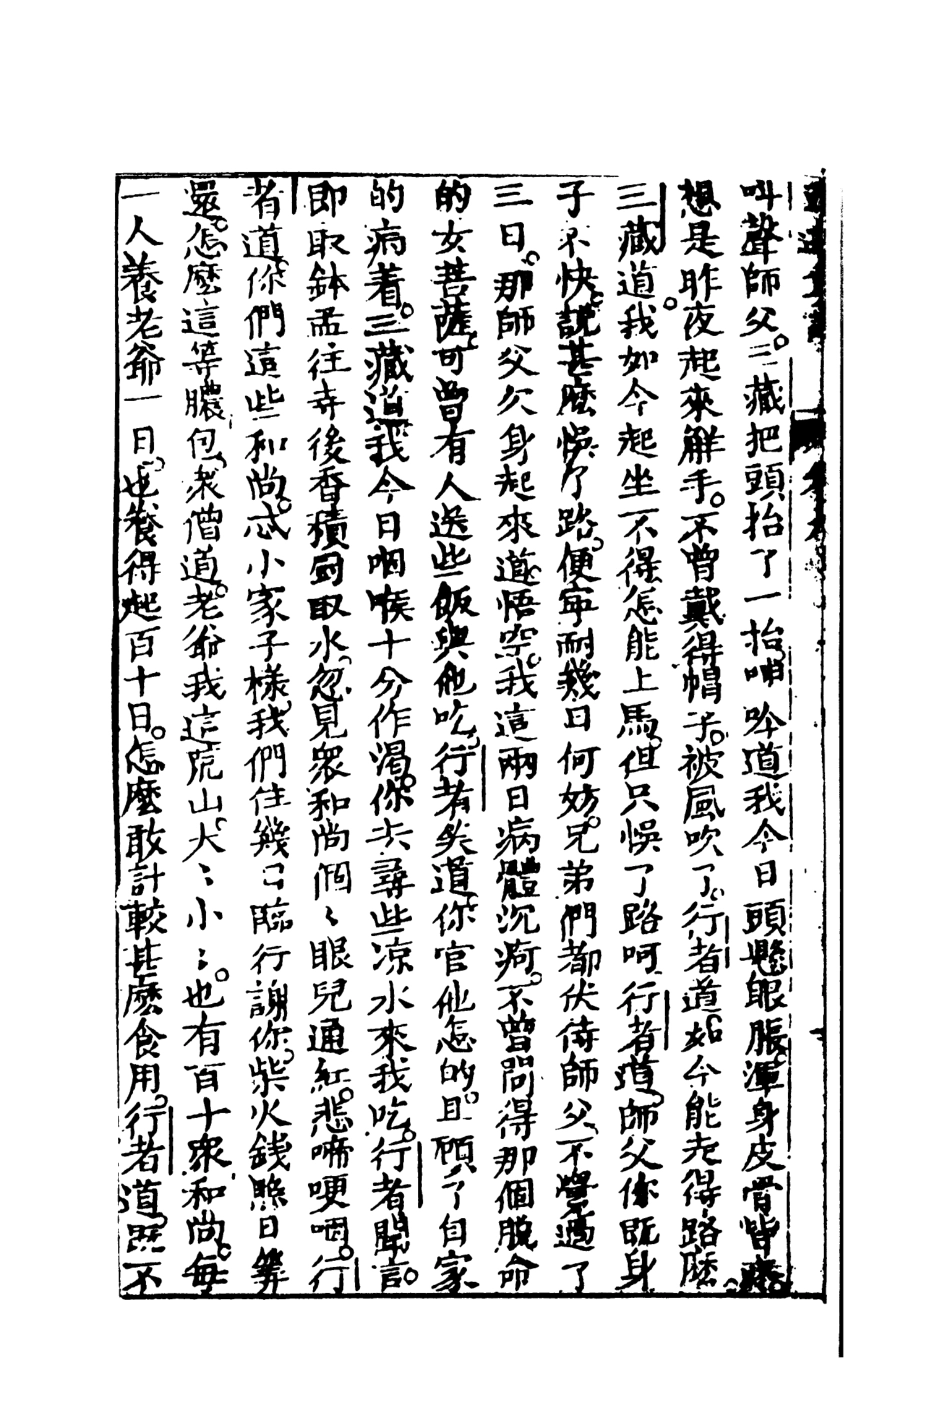 叫聲師父。三藏把頭抬了一抬呻吟道我今日頭懸眼脹渾身皮骨皆疼。
想是昨夜起來解手。不曾戴得帽子。被風吹了。行者道如今能走得路麽
三藏道。我如今起坐不得怎能上馬。但只悞了路呵行者道師父你既身
子不快。說甚麽悞了路。便寧耐幾日何妨。兄弟們都伏侍師父不覺過了
三日。那師父欠身起來道悟空。我這兩日病體沉疴。不曾問得那個脫命
的女菩薩可曾有人送些飯與他吃。行者笑道你官他怎的。且顧了自家
的病着。三藏道我今日咽喉十分作渴。你去尋些凉水來我吃。行者聞言。
即取鉢盂往寺後香積厨取水。忽見衆和尚個〻眼兒通紅。悲啼哽咽。行
者道你們這些和尚。忒小家子樣。我們住幾日臨行謝你。柴火錢照日筭
還。怎麽這等膿包。衆僧道。老爺我這院山。大〻小〻。也有百十衆和尚。每
一人養老爺一日。也養得起百十日。怎麽敢計較甚麽食用。行者道既不